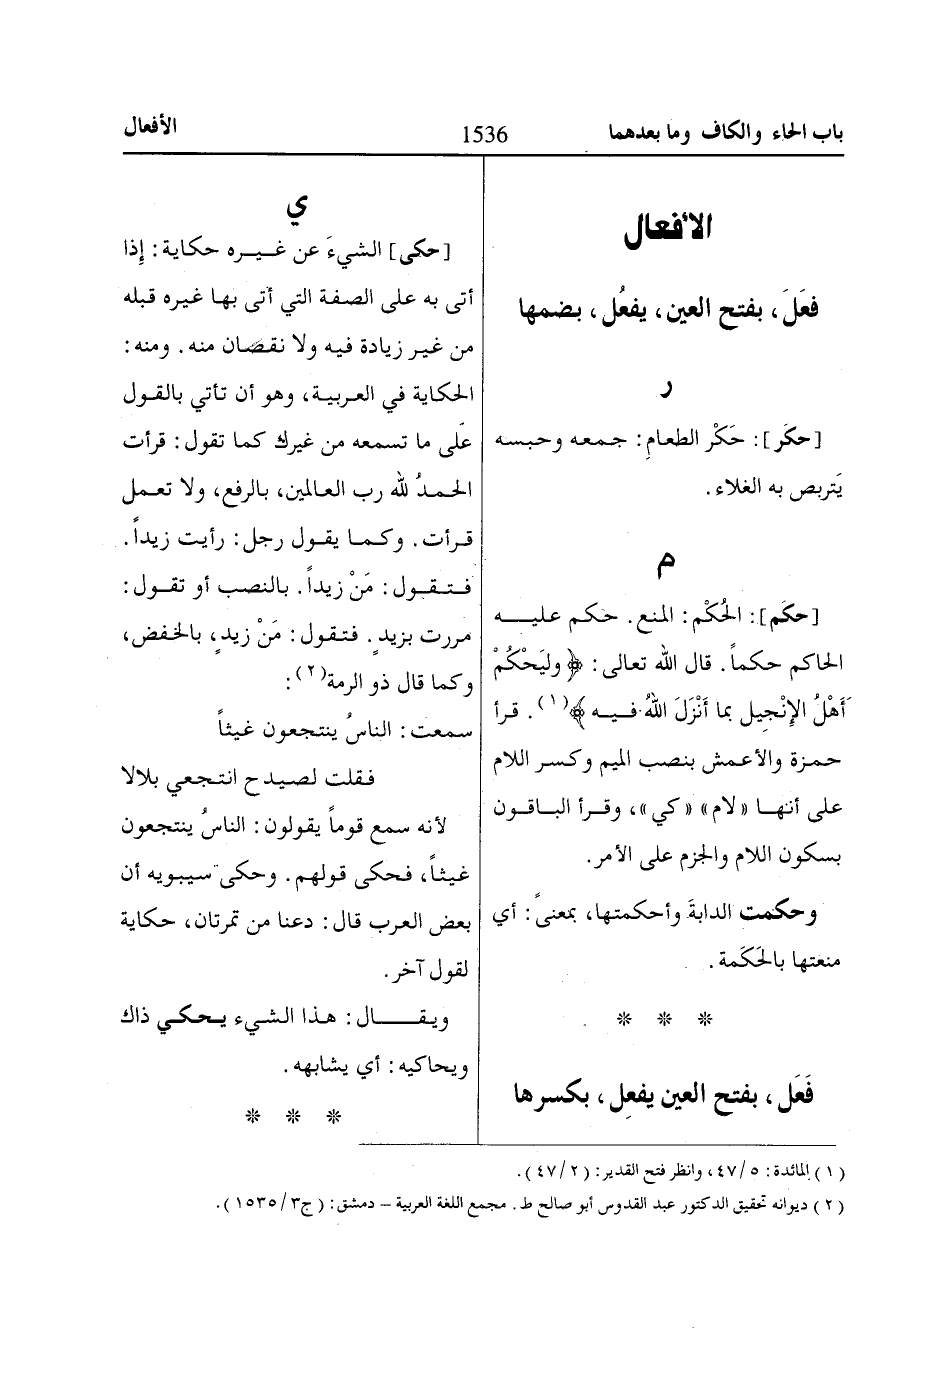 باب الحاء والكاف وما بعدهما
1536
الأفعال
الأفعال
فعَلَ، بفتح العين، يفعُل، بضمها
ر
[حكَر]: حَكْر الطعامِ: جمعه وحبسه
يَتربص به الغلاء.
م
[حكَم]: الحُكْم: المنع. حكم عليه
الحاكم حكماً. قال الله تعالى: ﴿وليَحْكُمْ
أَهْلُ الإنْجيل بما أَنْزَلَ اللهُ فيه﴾(١). قرأ
حمزة والأعمش بنصب الميم وكسر اللام
على أنها «لام» «كي»، وقرأ الباقون
بسكون اللام والجزم على الأمر.
وحكمت الدابةَ وأحكمتها، بمعنىً: أي
منعتها بالحَكَمة.
* * *
فَعَل، بفتح العين يفعِل، بكسرها
ي
[حكى] الشيءَ عن غيره حكاية: إذا
أتى به على الصفة التي أتى بها غيره قبله
من غير زيادة فيه ولا نقصان منه. ومنه:
الحكاية في العربية، وهو أن تأتي بالقول
على ما تسمعه من غيرك كما تقول: قرأت
الحمدُ لله رب العالمين، بالرفع، ولا تعمل
قرأت. وكما يقول رجل: رأيت زيداً.
فتقول: مَنْ زيداً. بالنصب أو تقول:
مررت بزيدٍ. فتقول: مَنْ زيدٍ، بالخفض،
وكما قال ذو الرمة(٢):
سمعت: الناسُ ينتجعون غيثاً
فقلت لصيدح انتجعي بلالا
لأنه سمع قوماً يقولون: الناسُ ينتجعون
غيثاً، فحكى قولهم. وحكى سيبويه أن
بعض العرب قال: دعنا من تمرتان، حكاية
لقول آخر.
ويقال: هذا الشيء يحكي ذاك
ويحاكيه: أي يشابهه.
* * *
(١) المائدة: ٥/٤٧، وانظر فتح القدير: (٢/٤٧).
(٢) ديوانه تحقيق الدكتور عبد القدوس أبو صالح ط. مجمع اللغة العربية – دمشق: (ج٣/١٥٣٥).